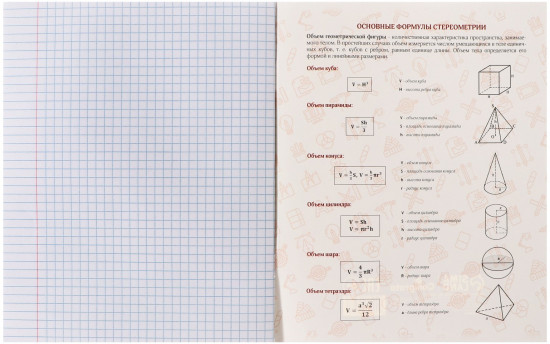 ОСНОВНЫЕ ФОРМУЛЫ СТЕРЕОМЕТРИИ
Объем геометрической фигуры - количественная характеристика пространства, занимае-
мого телом. В простейших случаях объем измеряется числом умещающихся в теле единич-
ных кубов, т. е. кубов с ребром, равным единице длины. Объем тела определяется его
формой и линейными размерами.
Объем куба:
V = H³
V - объем куба
H - высота ребра куба
Объем пирамиды:
V = Sh/3
V - объем пирамиды
S - площадь основания пирамиды
h - высота пирамиды
Объем конуса:
V = h/3 S, V = h/3 πr²
V - объем конуса
S - площадь основания конуса
h - высота конуса
r - радиус конуса
Объем цилиндра:
V = Sh
V = πr²h
V - объем цилиндра
S - площадь основания цилиндра
h - высота цилиндра
r - радиус цилиндра
Объем шара:
V = 4/3 πR³
V - объем шара
R - радиус шара
Объем тетраэдра:
V = a³√2/12
V - объем тетраэдра
a - длина ребра тетраэдра